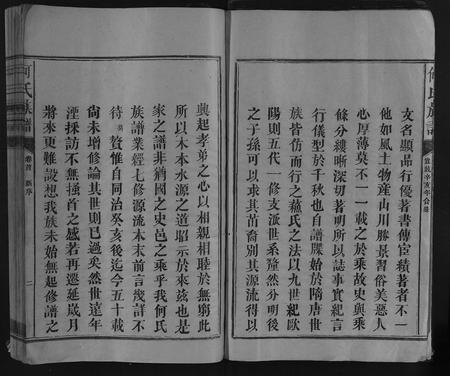 支名顯品行優著書傳宦績著者不一
他如風土物產山川勝景習俗美惡人
心厚薄莫不一一載之於乘故史與乘
條分縷晰深切著明所以誌事實紀言
行儀型於千秋也自譜牒始於隋唐世
族皆仿而行之蘇氏之法以九世紀歐
陽則五代一修支派世系釐然分明後
之子孫可以本苗裔別其源流得以
興起孝弟之心以相親相睦於無窮此
所以木本水源之道昭示於來茲也是
家之譜非猶國之史邑之乘乎我何氏
族譜業經七修源流本末前言幾詳不
待 贅惟自同治癸亥後迄今五十載
尙未增修論其世則已過矣然世遠年
湮採訪不無掻首之感若再遷延歲月
將來更難設想我族未始無起修譜之
何氏族譜
卷首 新序
二